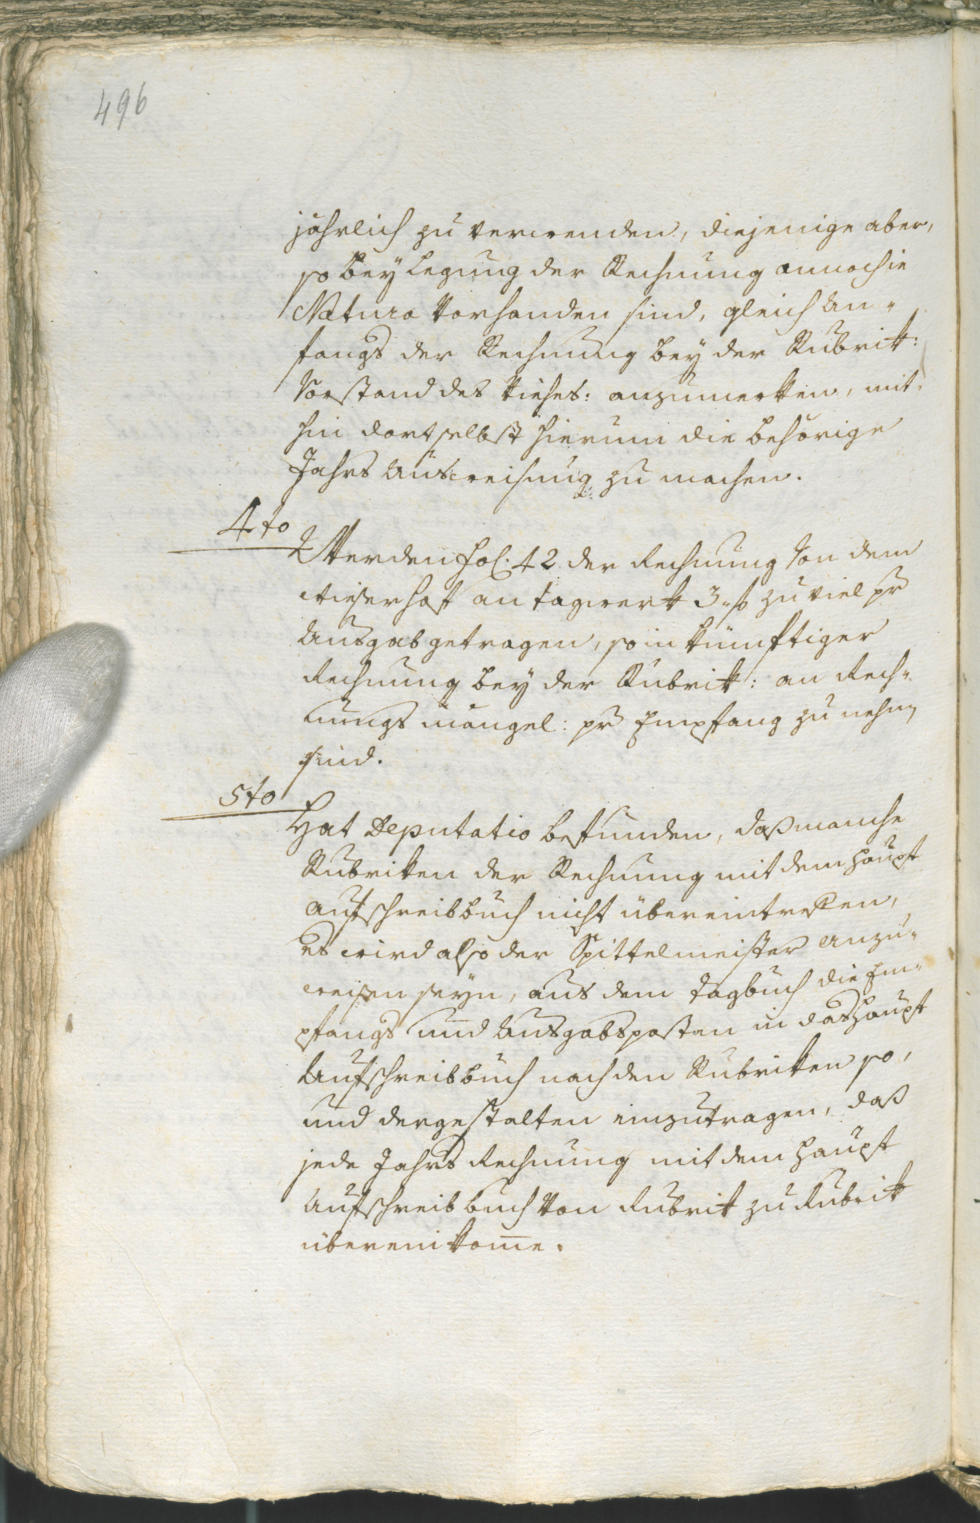 496
jährlich zu verwenden, diejenige aber,
so bey Legung der Rechnung annoch in
Natura vorhanden sind, gleich An-
fangs der Rechnung bey der Rubrik:
Vorstand des Viehes: anzumerken, mit-
hin dortselbst hierum die behörige
Jahrs Ausweisung zu machen.
4to
Werden Fol. 42 der Rechnung von dem
an Tagwerk 3 ß zu viel pr
Ausgab getragen, so in künftiger
Rechnung bey der Rubrik: an Rech-
nungs mängel: pr Empfang zu nehmen
sind.
5to
Hat Deputatio befunden, daß manche
Rubriken der Rechnung mit dem Haupt
aufschreibbuch nicht übereintreffen,
es wird also der Spittelmeister anzu-
weisen seyn, aus dem Tagbuch die Em-
pfangs und Ausgabsposten in das Haupt
Aufschreibbuch nach den Rubriken so,
und dergestalten einzutragen, daß
jede Jahrs Rechnung mit dem Haupt
Aufschreibbuch von Rubrik zu Rubrik
übereinkom̅e.